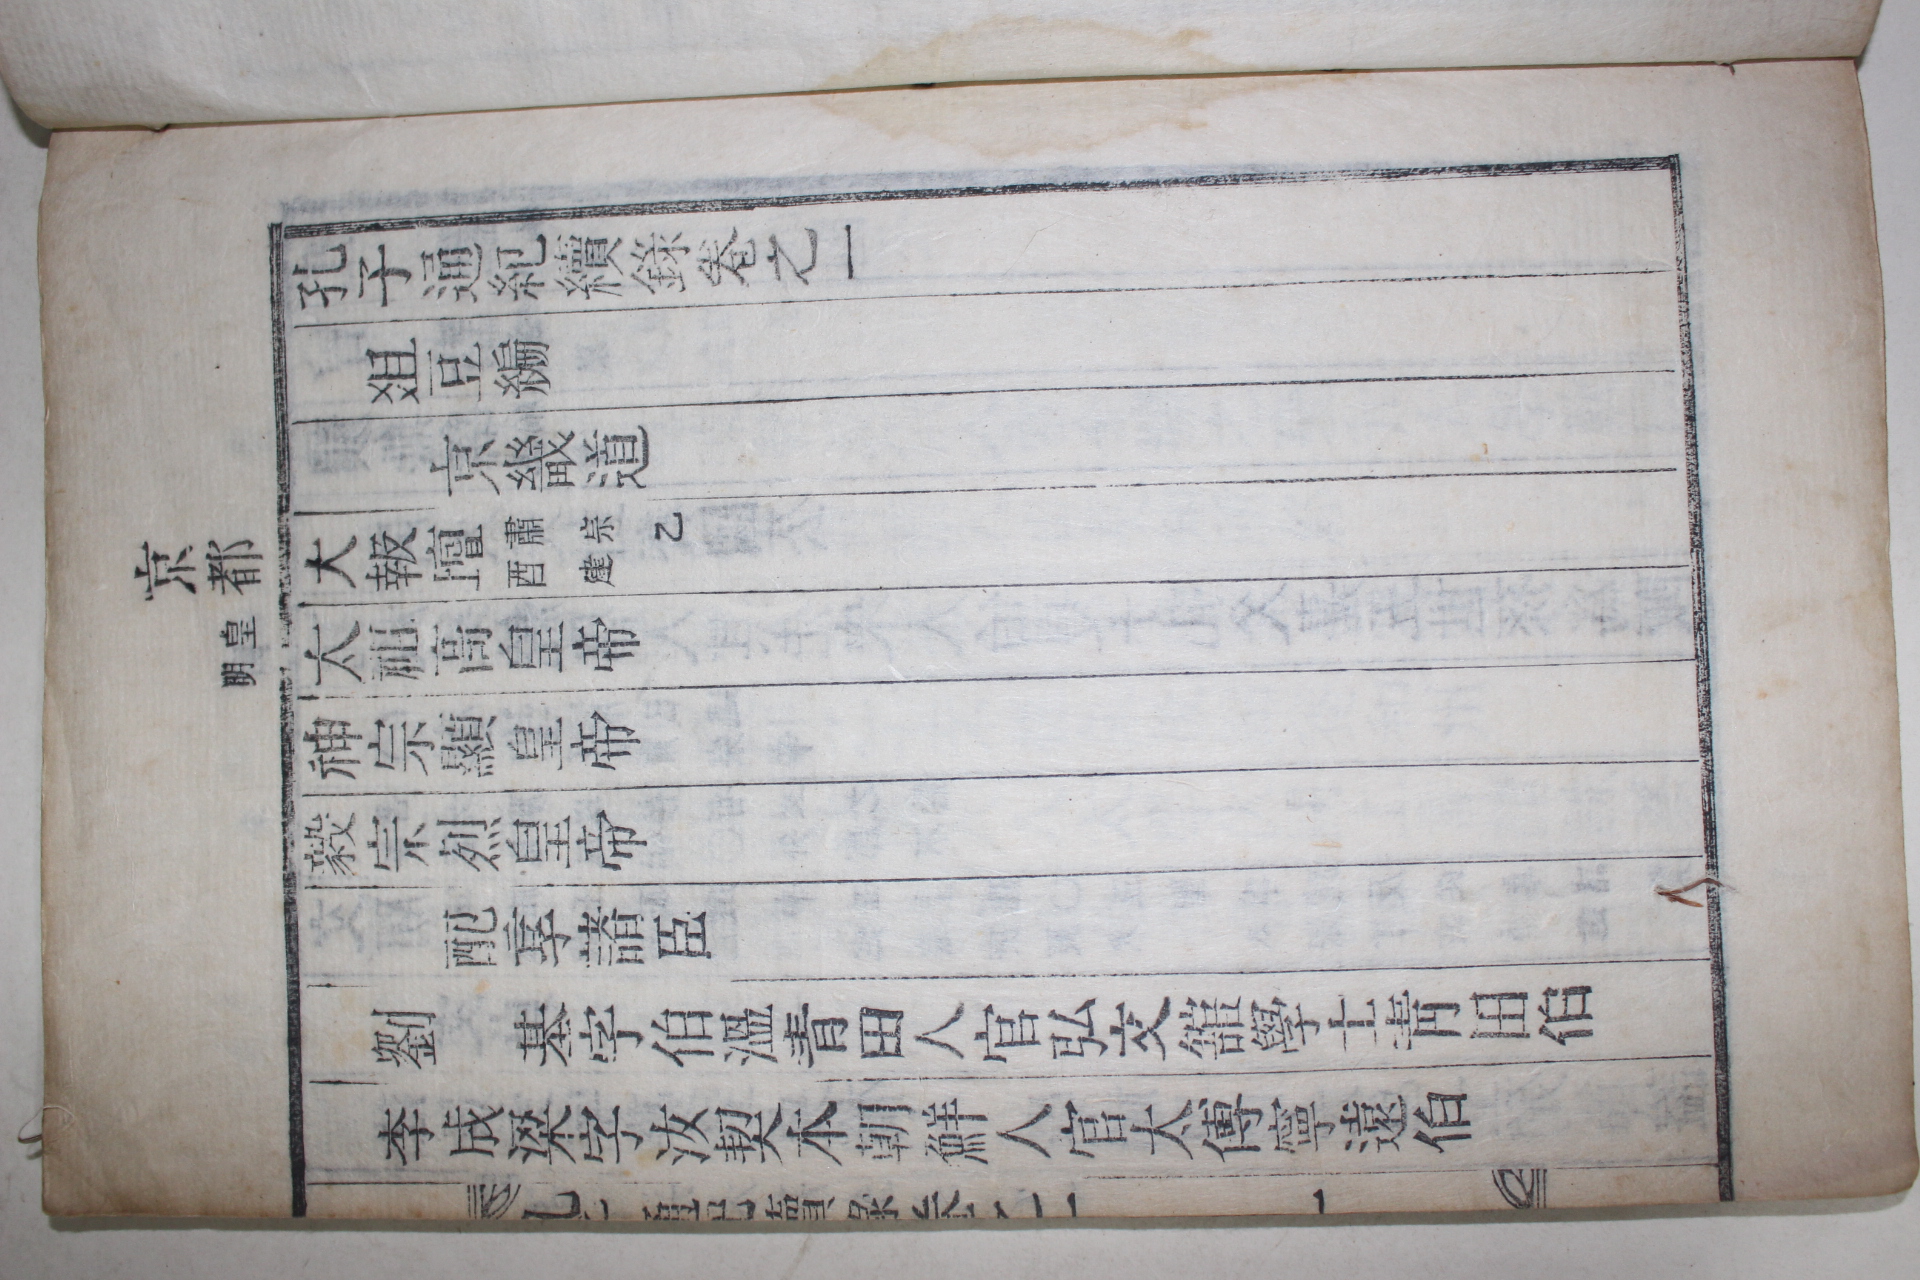 京都
皇明
孔子通紀續錄卷之一
俎豆編
京畿道
大報壇肅宗乙酉建
太祖高皇帝
神宗顯皇帝
毅宗烈皇帝
配享諸臣
劉基字伯溫青田人官弘文館學士青田伯
李成梁字汝契本朝鮮人官太傅寧遠伯
孔子通紀續錄卷之一
一